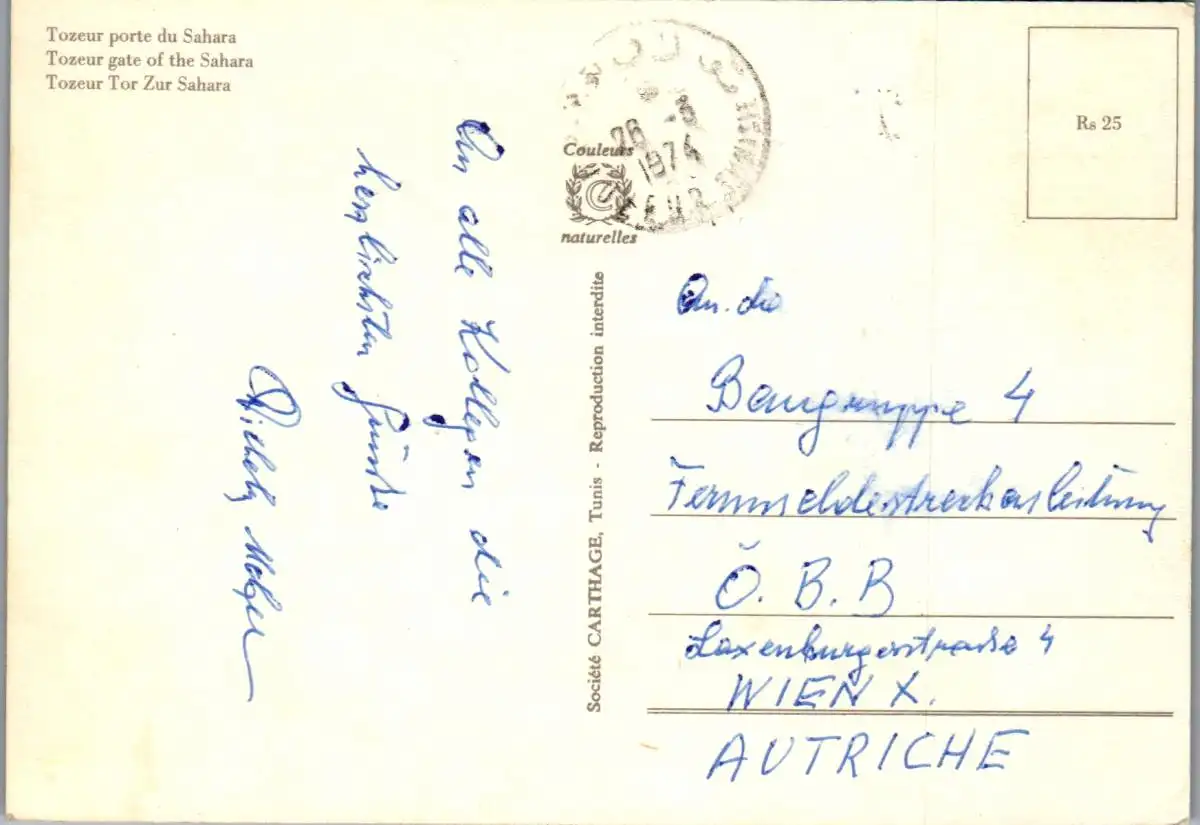 Tozeur porte du Sahara
Tozeur gate of the Sahara
Tozeur Tor Zur Sahara
26 -3
1974
Couleurs
naturelles
Rs 25
An alle Kollegen die
herzlichsten Grüße
Société CARTHAGE, Tunis - Reproduction interdite
An die
Baugruppe 4
Fernmeldestreckenleitung
Ö. B. B
Laxenburgerstraße 4
WIEN X.
AUTRICHE